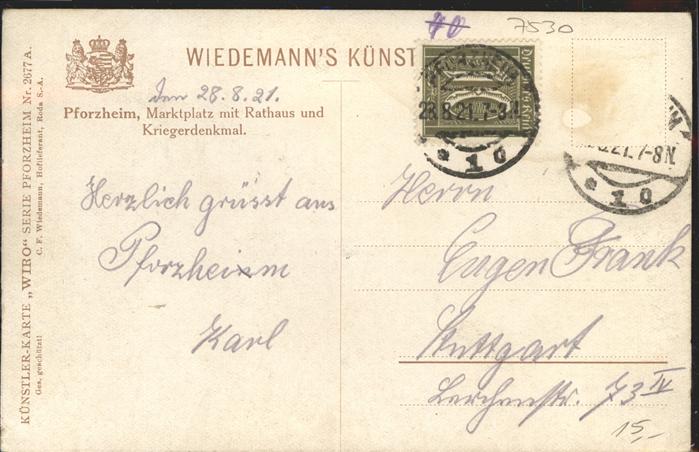 40
7530
WIEDEMANN'S KÜNST
den 28.8.21.
Pforzheim, Marktplatz mit Rathaus und
Kriegerdenkmal.
28.8.21.7-8N
* 1 c
.8.21.7-8N.
* 1 c
Herzlich grüsst aus
Pforzheim
Karl
Herrn
Eugen Frank
Stuttgart
Lerchenstr. 73 IV
15,-
KÜNSTLER-KARTE „WIRO" SERIE PFORZHEIM Nr. 2677 A.
Ges. geschützt! C. F. Wiedemann, Hoflieferant, Roda S.-A.